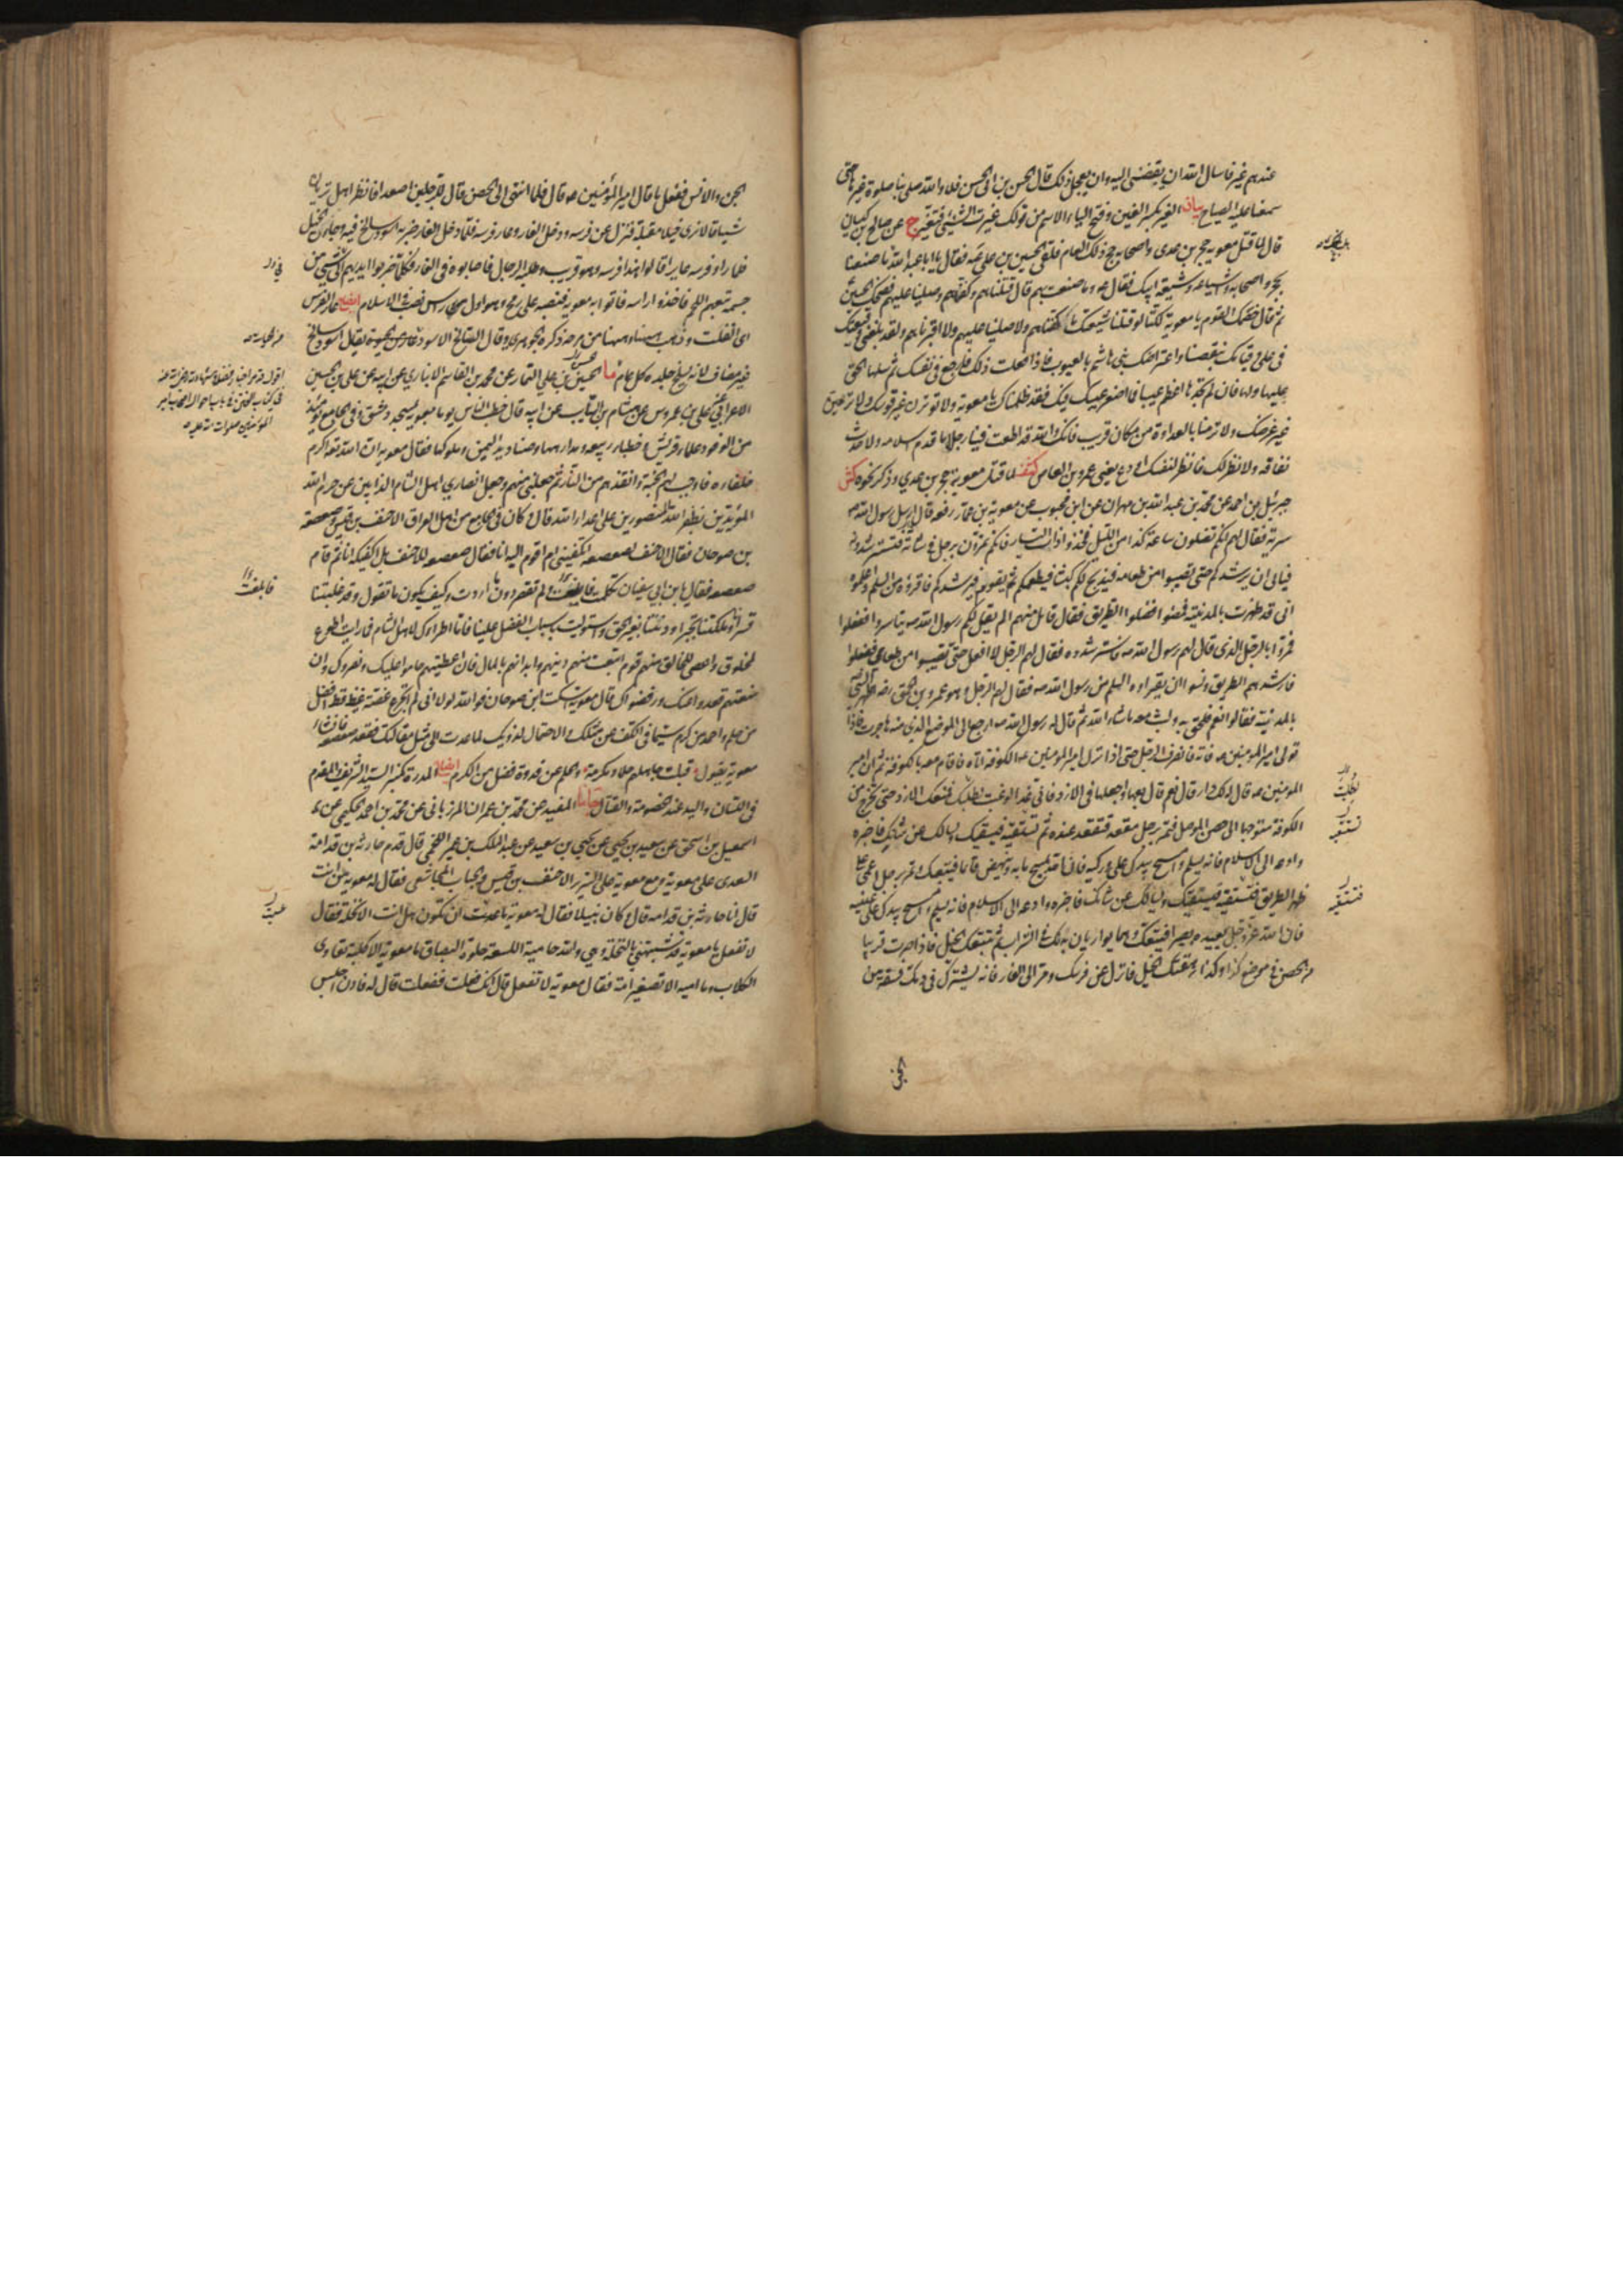 عندهم غير فاسال الله ان يقضى اليه وان يعجل ذلك قال الحسن بن ابى الحسن فلا والله صلى بنا صلوة غيرها حتى
سمعنا عليه الصياح بيان الغير بكسر الغين وفتح الياء الاسم من قولك غيرت الشيئ فتغير ج عن صالح بن كيسان
قال لما قتل معوية حجر بن عدى واصحابه حج ذلك العام فلقى الحسين بن على عه فقال يا ابا عبد الله هل بلغك ما صنعنا
بحجر واصحابه واشياعه وشيعة ابيك فقال عه وما صنعت بهم قال قتلناهم وكفناهم وصلينا عليهم فضحك الحسين
ثم قال خصمك القوم يا معوية لكننا لو قتلنا شيعتك ما كفناهم ولا صلينا عليهم ولا اقبرناهم ولقد بلغنى وقيعتك
فى على وقيامك بنقصنا واعتراضك بنى هاشم بالعيوب فاذا فعلت ذلك فارجع فى نفسك ثم سلها الحق
عليها ولها فان لم تجدها اعظم عيبا فما اصغر عيبك فيك فقد ظلمناك يا معوية ولا توترن غير قوسك ولا ترمين
غير غرضك ولا ترمنا بالعداوة من مكان قريب فانك والله قد اطعت فينا رجلا ما قدم اسلامه ولا حدث
نفاقه ولا نظر لك فانظر لنفسك او دع يعنى عمرو بن العاص كشف لما قتل معوية حجر بن عدي وذكر نحوه كش
جبرئيل بن احمد عن محمد بن عبد الله بن مهران عن ابن محبوب عن معوية بن عمار رفعه قال ارسل رسول الله صه
سرية فقال لهم انكم تضلون ساعة كذا من الليل فخذوا ذات اليسار فانكم تمرون برجل فى شاته فتسترشدونه
فيابى ان يرشدكم حتى تصيبوا من طعامه فيذبح لكم كبشا فيطعمكم ثم يقوم فيرشدكم فاقرؤه من السلم واعلموه
انى قد ظهرت بالمدينة فمضوا فضلوا الطريق فقال قائل منهم الم يقل لكم رسول الله صه تياسروا ففعلوا
فمروا بالرجل الذى قال لهم رسول الله صه فاسترشدوه فقال لهم الرجل لا افعل حتى تصيبوا من طعامى ففعلوا
فارشدهم الطريق ونسوا ان يقراوه السلم من رسول الله صه فقال لهم الرجل وهو عمرو بن الحمق رضه اظهر النبى
بالمدينة فقالوا نعم فلحق به ولبث معه ما شاء الله ثم قال له رسول الله صه ارجع الى الموضع الذى منه هاجرت فاذا
تولى امير المومنين عه فاته فانصرف الرجل حتى اذا نزل امير المومنين عه الكوفة اتاه فاقام معه بالكوفة ثم ان امير
المومنين عه قال له الك دار قال نعم قال بعها واجعلها فى الازد فانى غدا لو غبت لطلبك فمنعك الازد حتى تخرج من
الكوفة متوجها الى حصن الموصل فتمر برجل مقعد فتقعد عنده ثم تستقيه فيسقيك ويسالك عن شانك فاخبره
وادعه الى الاسلام فانه يسلم وامسح بيدك على وركيه فان الله يمسح ما به وينهض قائما فيتبعك وتمر برجل اعمى على
ظهر الطريق فتستقيه فيسقيك ويسالك عن شانك فاخبره وادعه الى الاسلام فانه يسلم وامسح بيدك على عينيه
فان الله عز وجل يعيده بصيرا فيتبعك وهما يواريان بدنك فى التراب ثم تتبعك الخيل فاذا صرت قريبا
من الحصن فى موضع كذا وكذا رهقتك الخيل فانزل عن فرسك ومر الى الغار فانه يشترك فى دمك فسقة من
الجن
الجن والانس ففعل ما قال امير المؤمنين عه وقال فلما انتهى الى الحصن قال للرجلين اصعدا فانظرا هل تريان
شيئا قالا نرى خيلا مقبلة فنزل عن فرسه ودخل الغار وعار فرسه فلما دخل الغار ضربه اسود سالخ فيه وجاءت الخيل
فلما راوا فرسه عايرا قالوا هذا فرسه وهو قريب وطلبه الرجال فاصابوه فى الغار فكلما ضربوا ايديهم الى شيئ من
جسمه تبعهم اللحم فاخذوا راسه فاتوا به معوية فنصبه على رمح وهو اول راس نصب فى الاسلام ايضاح عار الفرس
اى انفلت وذهب ههنا وههنا من مرحه ذكره الجوهرى وقال السالخ الاسود من الحيوة يقال اسود سالخ
غير مضاف لانه يسلخ جلده كل عام ما الحسين بن على التمار عن محمد بن القاسم الانباري عن ابيه عن على بن الحسين
الاعرابى عن على بن عمروس عن هشام بن السايب عن ابيه قال خطب الناس يوما معوية بمسجد دمشق وفى الجامع يومئذ
من الوفود علماء قريش وخطباء ربيعة ومدارهها وصناديد اليمن وملوكها فقال معوية ان الله تعه اكرم
خلفاءه فاوجب لهم الجنة وانقذهم من النار ثم جعلنى منهم وجعل انصاري اهل الشام الذابين عن حرم الله
المؤيدين بظفر الله المنصورين على اعداء الله قال وكان فى الجامع من اهل العراق الاحنف بن قيس وصعصعة
بن صوحان فقال الاحنف لصعصعه اتكفينى ام اقوم اليه انا فقال صعصعه للاحنف بل اكفيكه انا ثم قام
صعصعه فقال يا بن ابى سفيان تكلمت فابلغت ولم تقصر دون ما اردت وكيف يكون ما تقول وقد غلبتنا
قسرا وملكتنا تجبرا ودنتنا بغير الحق واستوليت باسباب الفضل علينا فاما اطراؤك لاهل الشام فما رايت اطوع
لمخلوق واعصى للخالق منهم قوم ابتعت منهم دينهم وابدانهم بالمال فان اعطيتهم حاموا عليك ونصروك وان
منعتهم قعدوا عنك ورفضوك قال معوية اسكت ابن صوحان فوالله لولا انى لم اتجرع غصة غيظ قط افضل
من حلم واحمد من كرم سيما فى الكف عن مثلك والاحتمال لذويك لما عدت الى مثل مقالتك فقعد صعصعه فانشا
معوية يقول قبلت جاهلهم حلما وتكرمة والحلم عن قدرة فضل من الكرم ايضاح المدره كمنبر السيد الشريف المقدم
فى اللسان واليد عند الخصومة والقتال جا ما المفيد عن محمد بن عمران المرزبانى عن محمد بن احمد الحكيمى عن
اسمعيل بن اسحق عن سعيد بن يحيى عن يحيى بن سعيد عن عبد الملك بن عمير اللخمى قال قدم جارية بن قدامة
السعدى على معوية ومع معوية على السرير الاحنف بن قيس والحباب المجاشعى فقال له معوية من انت
قال انا جارية بن قدامه قال وكان نبيلا فقال له معوية ما عسيت ان تكون هل انت الا نحلة فقال
لا تفعل يا معوية قد شبهتنى بالنحلة وهى والله حامية اللسعة حلوة البصاق ما معوية الا كلبة تعاوى
الكلاب وما امية الا تصغير امة فقال معوية لا تفعل قال انك فعلت ففعلت قال له فادن اجلس
فابلغت